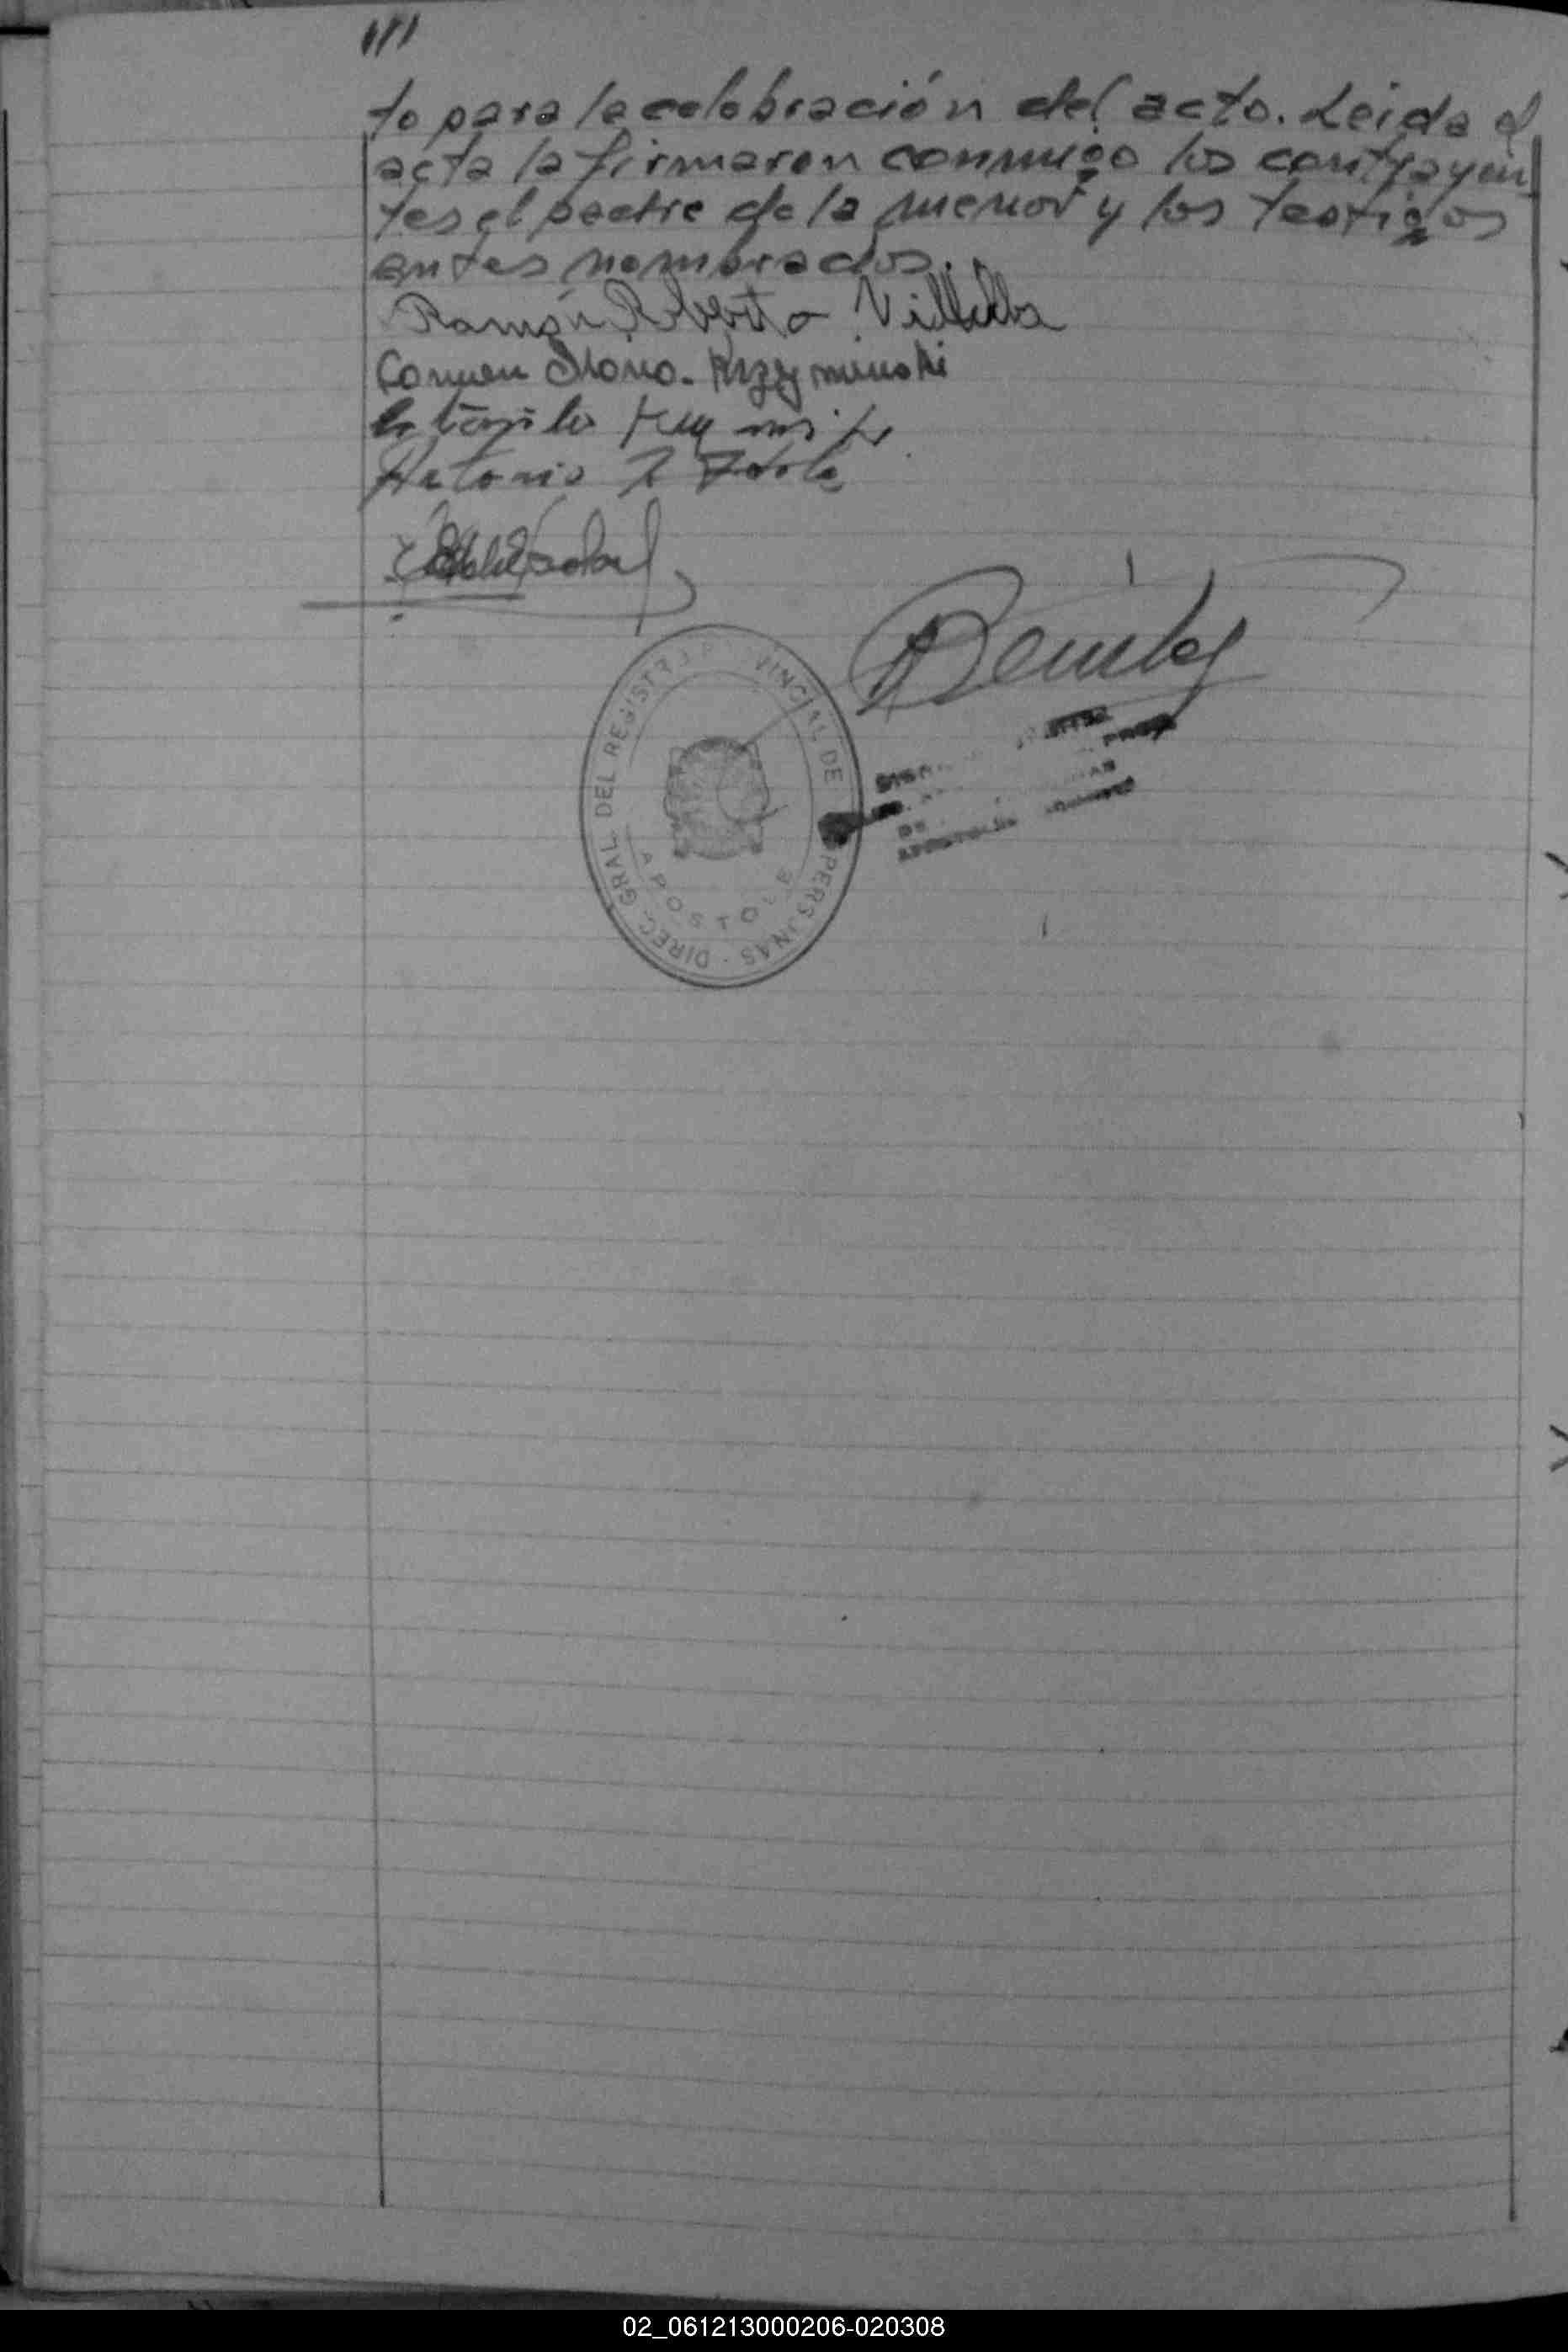 ///
to para la celebración del acto. Leida el
acta la firmaron conmigo los contrayen
tes el padre de la menor y los testigos
antes nombrados.
Ramón Roberto Villalba
Carmen Maria Krzyminski
Antonio
Benitez
DIREC. GRAL. DEL REGISTRO PROVINCIAL DE PERSONAS
APOSTOLES
DE
APOSTOLES
02_061213000206-020308